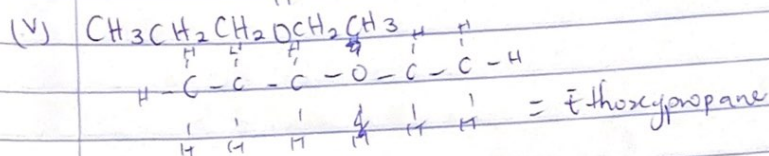 (V) CH3CH2CH2OCH2CH3
H H H H H
H - C - C - C - O - C - C - H
H H H H H = Ethoxypropane